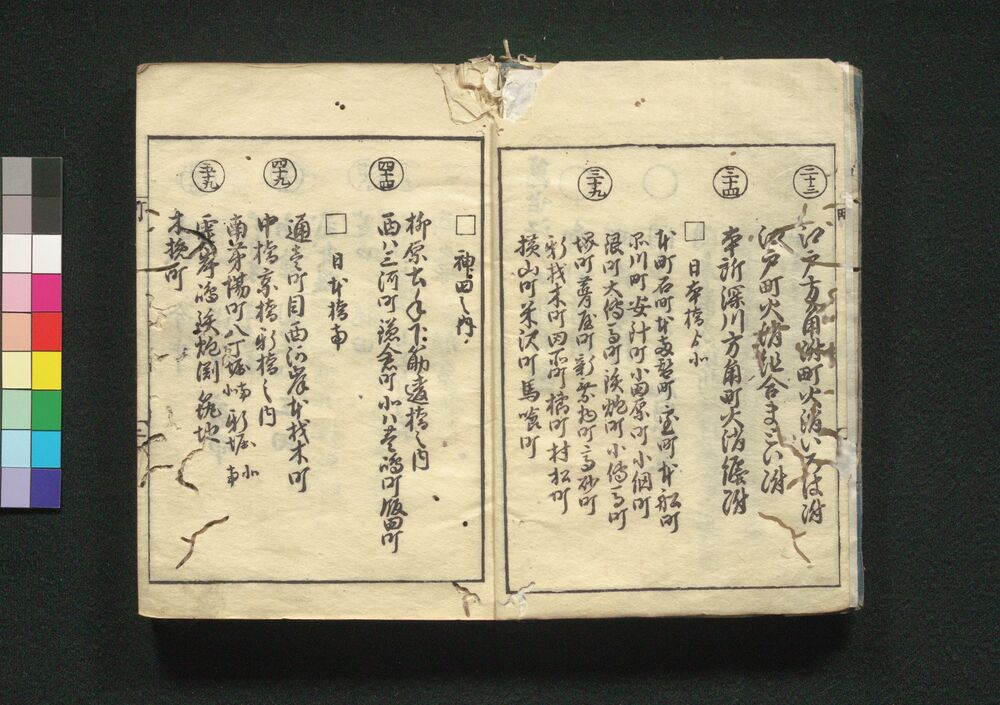 二十三
江戸方角附町火消いろは附
江戸町火消組合まとい附
二十四
本所深川方角町火消纏附
□ 日本橋ゟ北
三十九
本町石町本両替町室町本船町
品川町安針町小田原町小網町
銀町大傳馬町鉄炮町小傳馬町
堺町葺屋町新乗物町高砂町
新材木町田所町橘町村松町
横山町米沢町馬喰町
□ 神田之内
四十四
柳原土手下筋違橋之内
西ハ三河町鎌倉町北ハ 町飯田町
□ 日本橋南
四十九
通壱町目西河岸本材木町
中橋京橋新橋之内
南茅場町八丁堀 新堀 北南
五十九
霊岸嶋鉄炮洲築地
木挽町